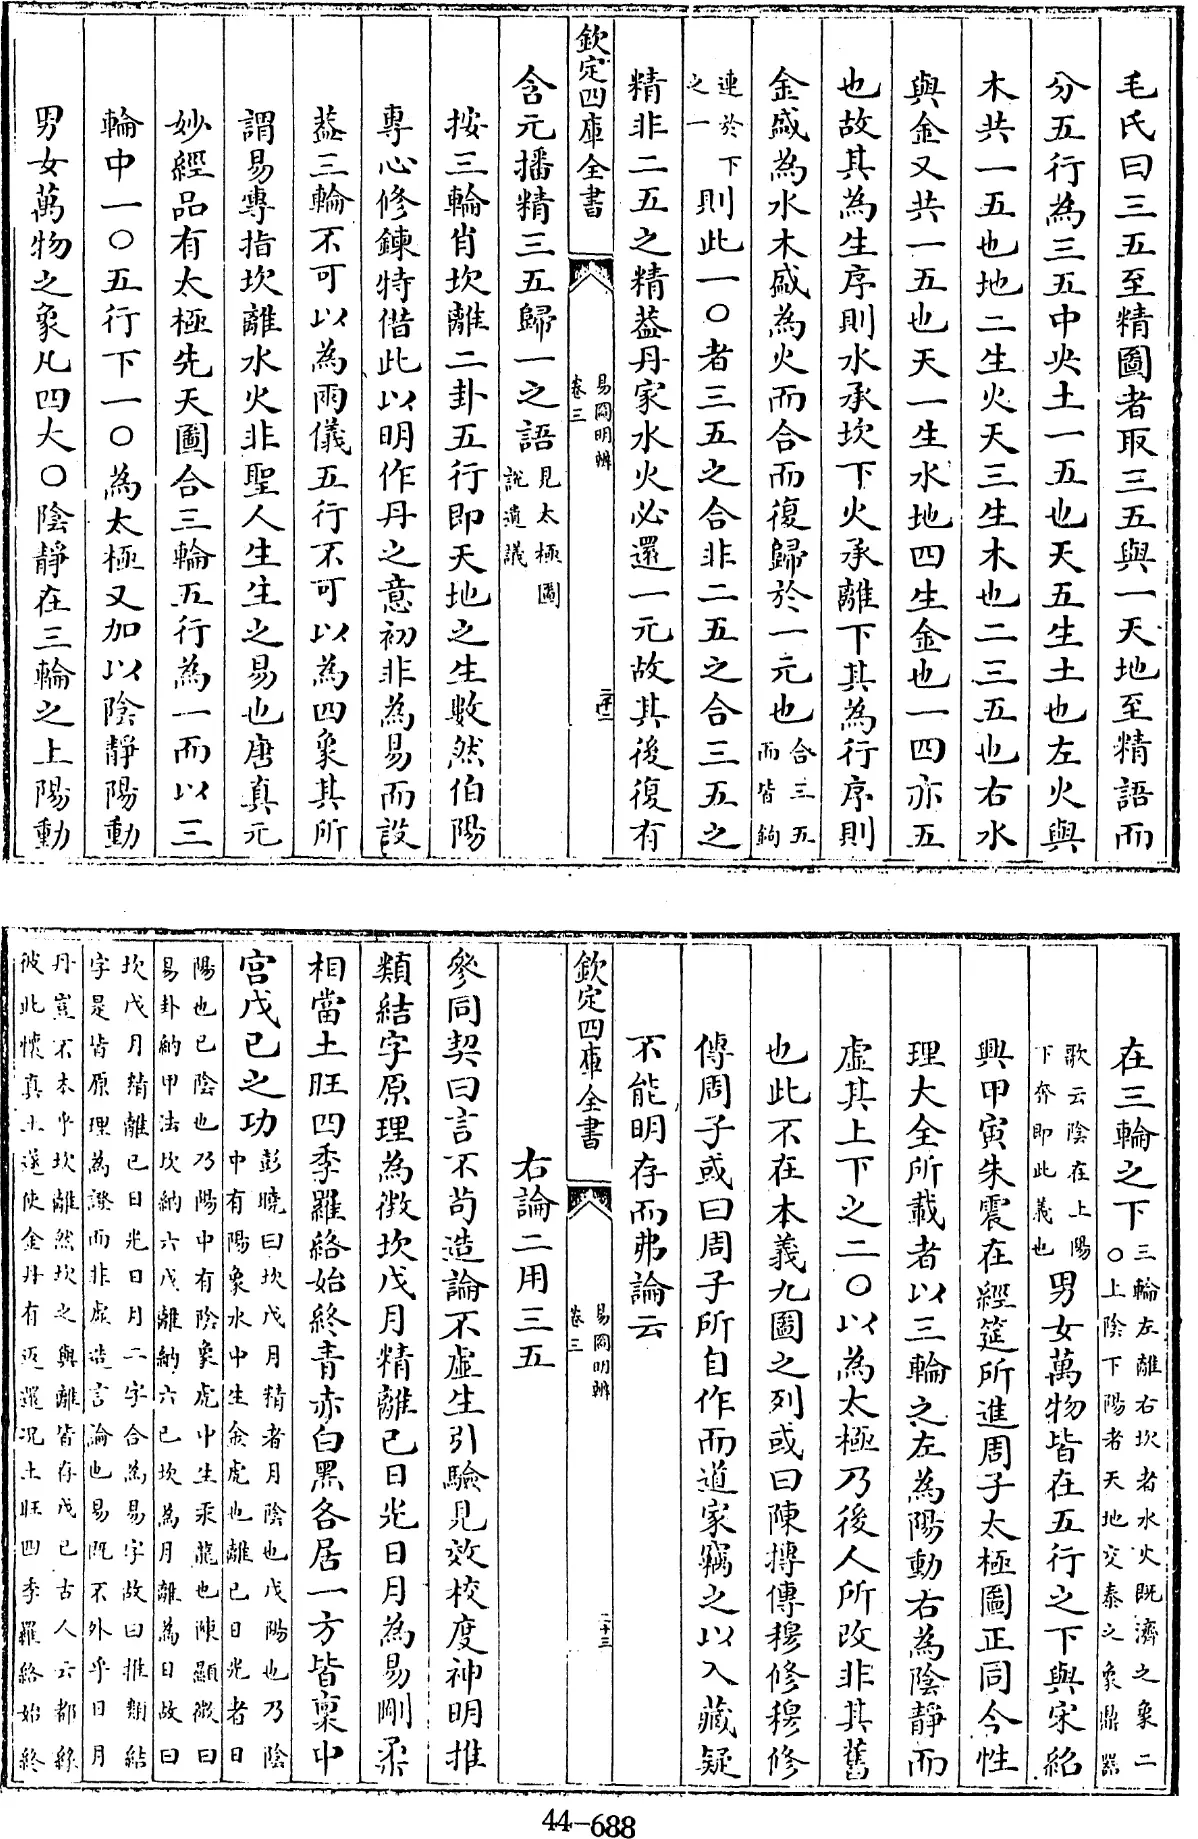 毛氏曰三五至精圖者取三五與一天地至精語而
分五行為三五中央土一五也天五生土也左火與
木共一五也地二生火天三生木也二三五也右水
與金又共一五也天一生水地四生金也一四亦五
也故其為生序則水承坎下火承離下其為行序則
金盛為水木盛為火而合而復歸於一元也合三五
而皆鉤
連於下
之一則此一〇者三五之合非二五之合三五之
精非二五之精葢丹家水火必還一元故其後復有
欽定四庫全書
易圖明辨
卷三
二十二
含元播精三五歸一之語見太極圖
說遺議
按三輪肖坎離二卦五行即天地之生數然伯陽
專心修鍊特借此以明作丹之意初非為易而設
葢三輪不可以為兩儀五行不可以為四象其所
謂易專指坎離水火非聖人生生之易也唐真元
妙經品有太極先天圖合三輪五行為一而以三
輪中一〇五行下一〇為太極又加以陰靜陽動
男女萬物之象凡四大〇陰靜在三輪之上陽動
在三輪之下三輪左離右坎者水火既濟之象二
〇上陰下陽者天地交泰之象鼎器
歌云陰在上陽
下奔即此義也男女萬物皆在五行之下與宋紹
興甲寅朱震在經筵所進周子太極圖正同今性
理大全所載者以三輪之左為陽動右為陰靜而
虛其上下之二〇以為太極乃後人所改非其舊
也此不在本義九圖之列或曰陳摶傳穆修穆修
傳周子或曰周子所自作而道家竊之以入藏疑
不能明存而弗論云
欽定四庫全書
易圖明辨
卷三
二十三
右論二用三五
參同契曰言不苟造論不虛生引驗見效校度神明推
類結字原理為徵坎戊月精離己日光日月為易剛柔
相當土旺四季羅絡始終青赤白黑各居一方皆稟中
宮戊己之功彭曉曰坎戊月精者月陰也戊陽也乃陰
中有陽象水中生金虎也離己日光者日
陽也己陰也乃陽中有陰象虎中生汞龍也陳顯微曰
易卦納甲法坎納六戊離納六己坎為月離為日故曰
坎戊月精離己日光日月二字合為易字故曰推類結
字是皆原理為證而非虛造言論也易既不外乎日月
丹豈不本乎坎離然坎之與離皆存戊己古人云都緣
彼此懷真土遂使金丹有返還况土旺四季羅絡始終
44-688